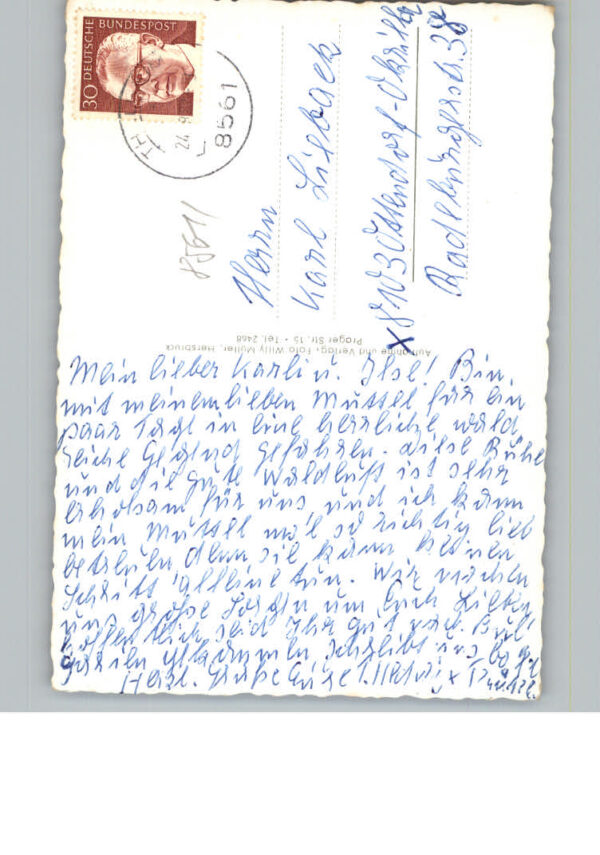 30 DEUTSCHE BUNDESPOST
24.
8561
8561/
Herrn
Karl Lieback
x 8103 Ottendorf-Okrilla
Radeburgerstr. 38
Aufnahme und Verlag: Foto Willy Müller, Hersbruck
Prager Str. 15 · Tel. 2468
Mein lieber Karli u. Ilse! Bin
mit meinem lieben Muttel für ein
paar Tage in eine herrliche wald
reiche Gegend gefahren. Diese Ruhe
und die gute Waldluft ist sehr
erholsam für uns und ich kann
mein Muttel mal so richtig lieb
betreuen denn sie kann keinen
Schritt alleine tun. Wir machen
uns große Sorgen um Euch Lieben
hoffentlich seid Ihr gut
schreibt uns
Herzl. Grüße Eure T.